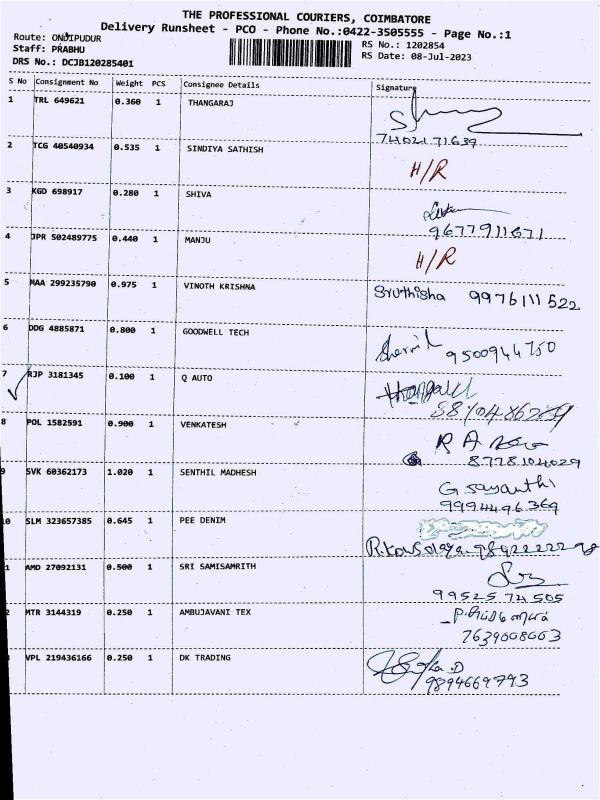 THE PROFESSIONAL COURIERS, COIMBATORE
Delivery Runsheet - PCO - Phone No.:0422-3505555 - Page No.:1
Route: ONDIPUDUR
RS No.: 1202854
Staff: PRABHU
RS Date: 08-Jul-2023
DRS No.: DCJB120285401
S No Consignment No Weight PCS Consignee Details Signature
1 TRL 649621 0.360 1 THANGARAJ
74021 71639
2 TCG 40540934 0.535 1 SINDIYA SATHISH
H/R
3 KGD 698917 0.280 1 SHIVA
9677911671
4 JPR 502489775 0.440 1 MANJU
H/R
5 MAA 299235790 0.975 1 VINOTH KRISHNA Sruthisha 9976111522
6 DDG 4885871 0.800 1 GOODWELL TECH
9500944750
7 RJP 3181345 0.100 1 Q AUTO
8 POL 1582591 0.900 1 VENKATESH
8778104029
9 SVK 60362173 1.020 1 SENTHIL MADHESH
G sayanthi
9994496369
0 SLM 323657385 0.645 1 PEE DENIM
R.Kousalaya
1 AMD 27092131 0.500 1 SRI SAMISAMRITH
99525 74505
2 MTR 3144319 0.250 1 AMBUJAVANI TEX
7639008003
VPL 219436166 0.250 1 DK TRADING
9894669793